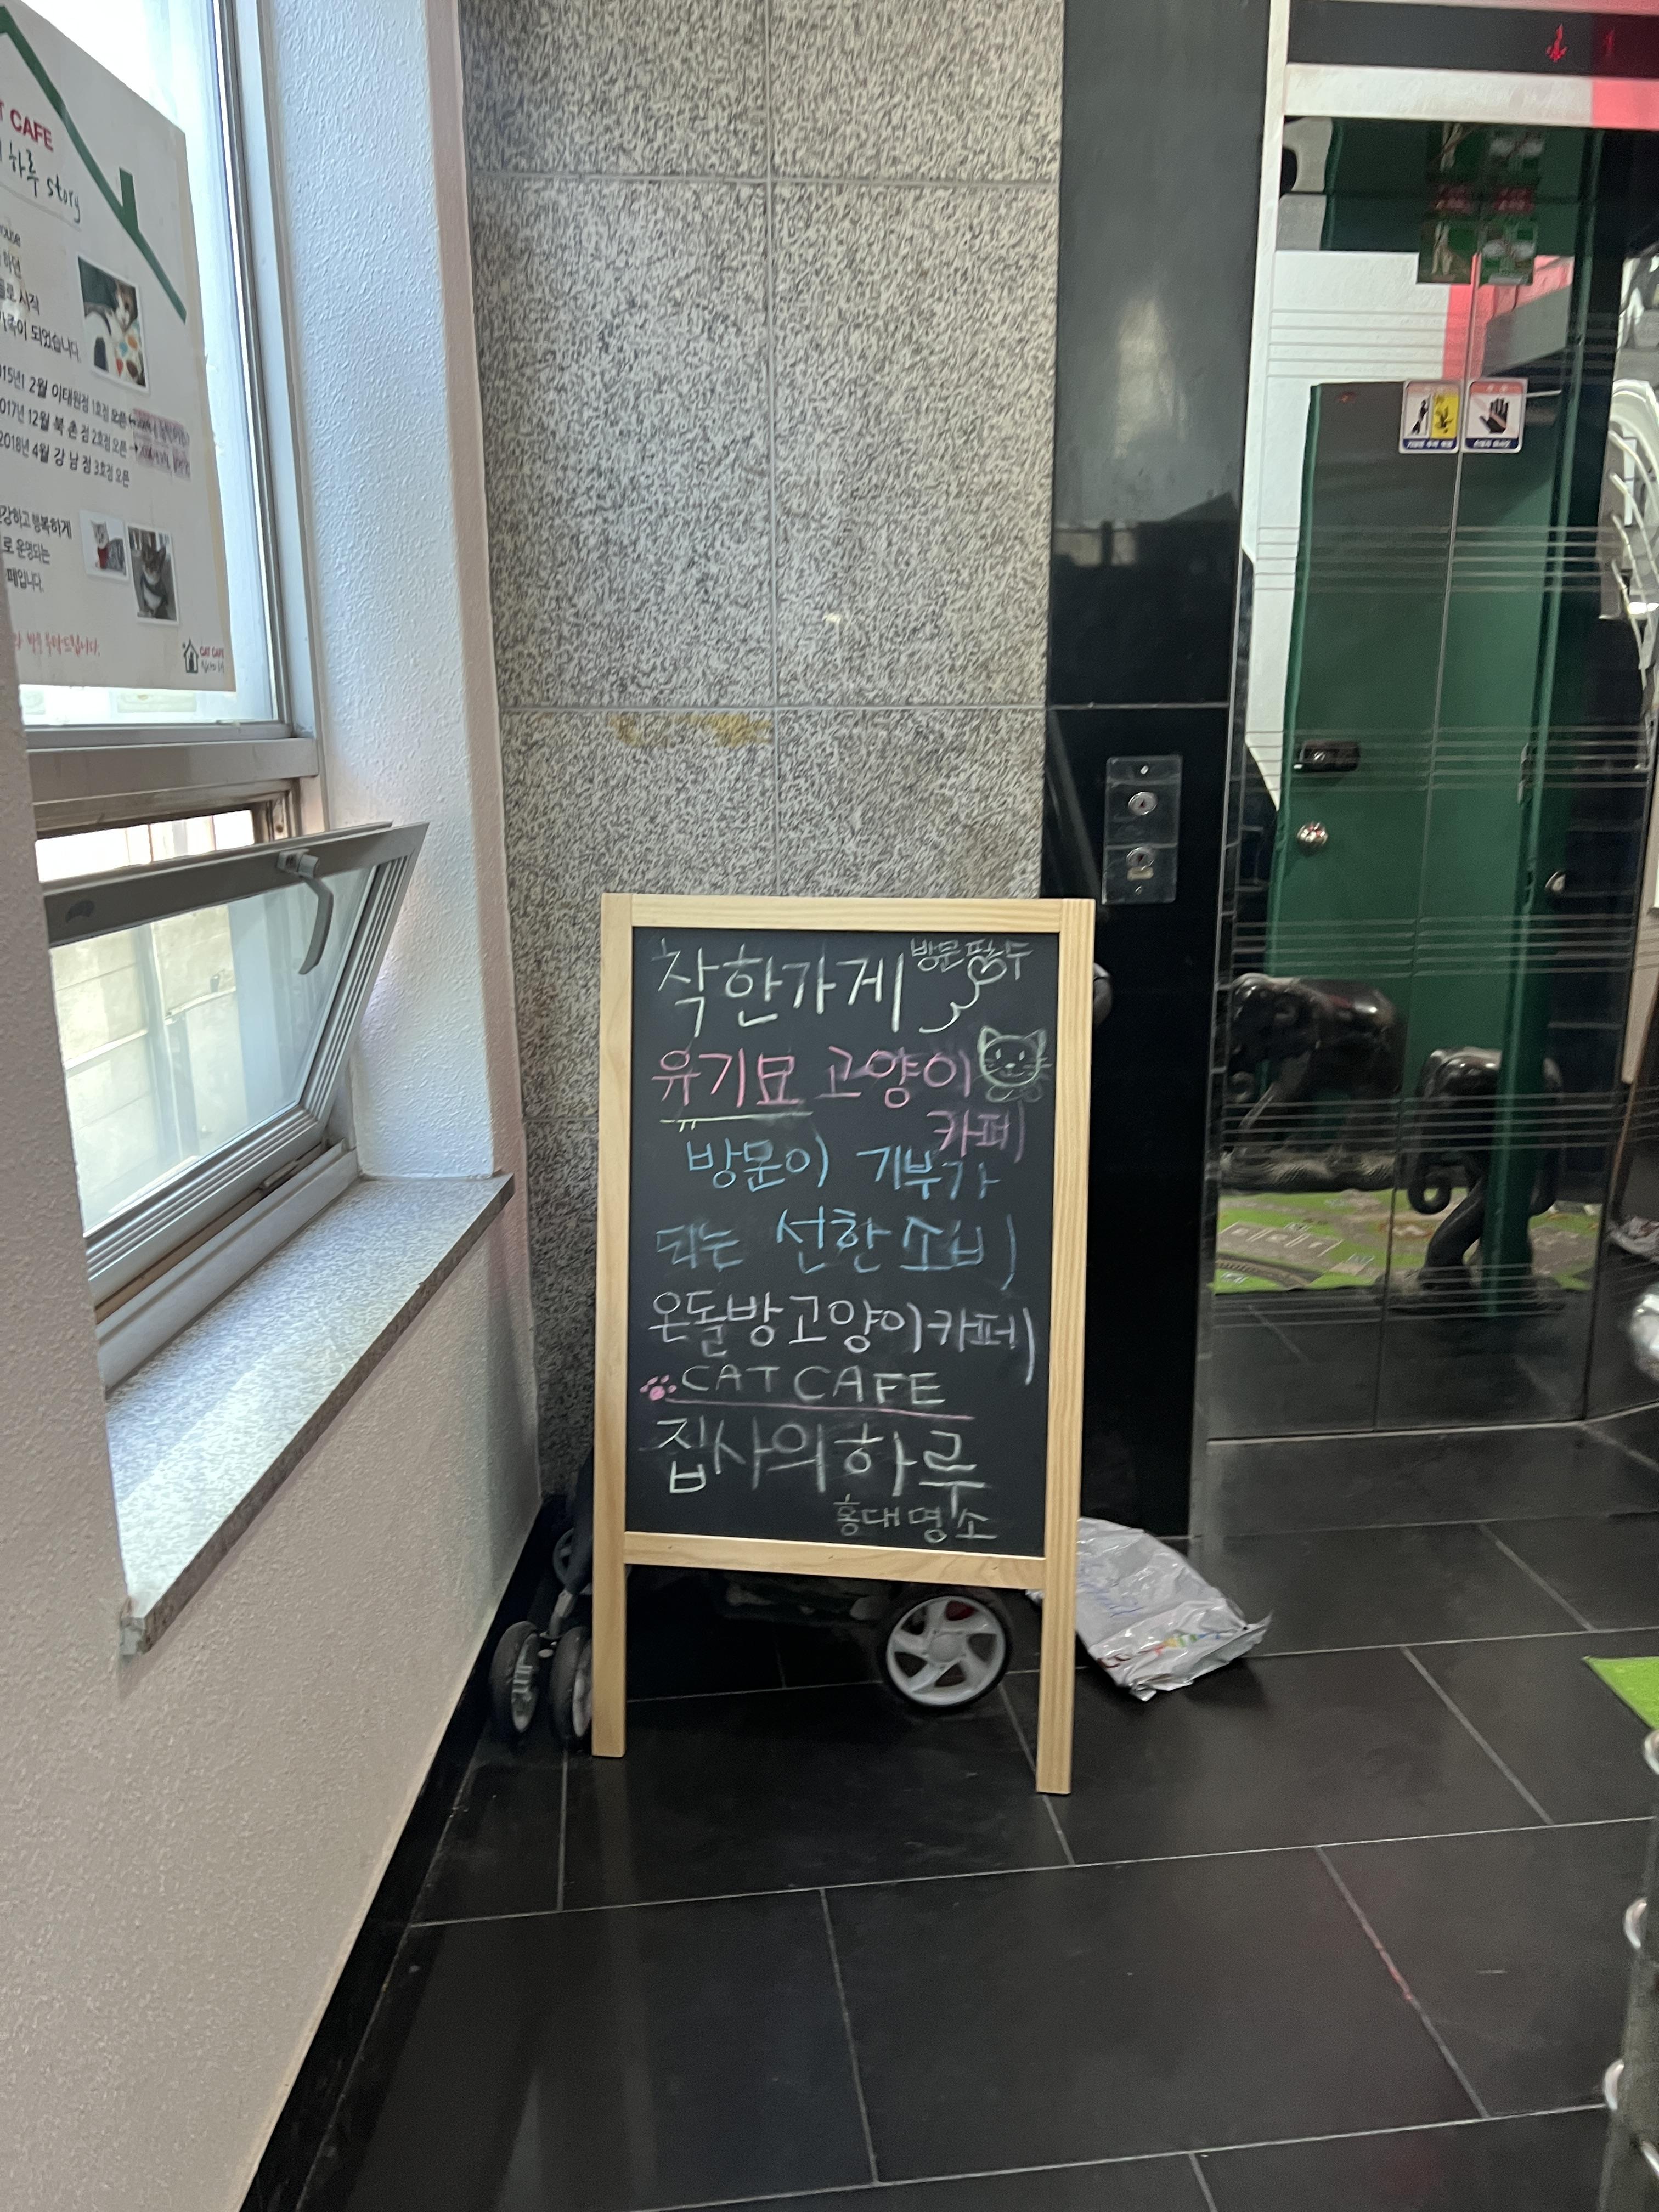 T CAFE
하루 story
하던
로 시작
가족이 되었습니다.
2월 이태원점 1호점 오픈
2017년 12월 북촌점 2호점 오픈
2018년 4월 강남점 3호점 오픈
강하고 행복하게
로 운영되는
페입니다.
CAT CAFE
착한가게
방문
유기묘 고양이
카페
방문이 기부가
되는 선한소비
온돌방고양이카페
CAT CAFE
집사의하루
홍대명소